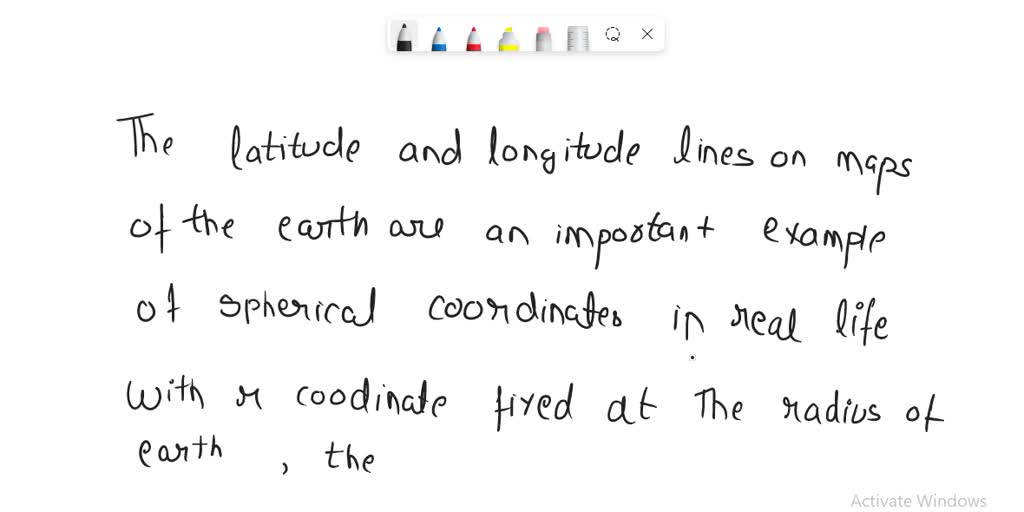 The latitude and longitude lines on maps
of the earth are an important example
of spherical coordinates in real life
with r coodinate fixed at The radius of
earth , the
Activate Windows